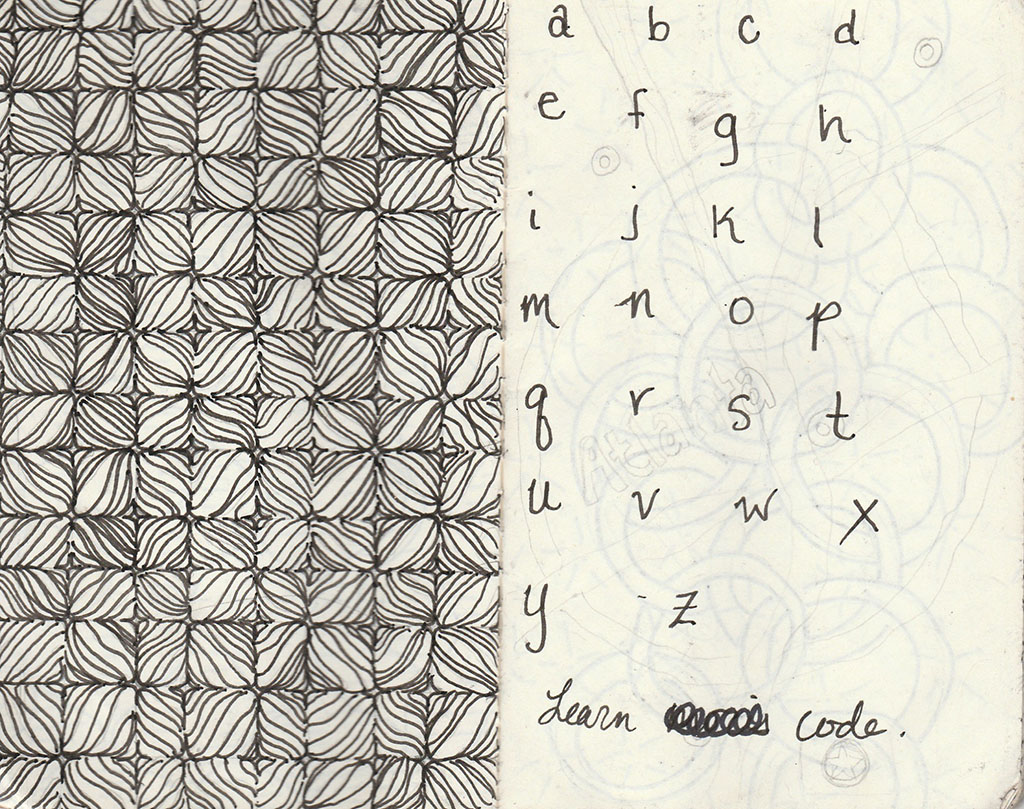 a b c d
e f g h
i j k l
m n o p
q r s t
u v w x
y z
Learn code.